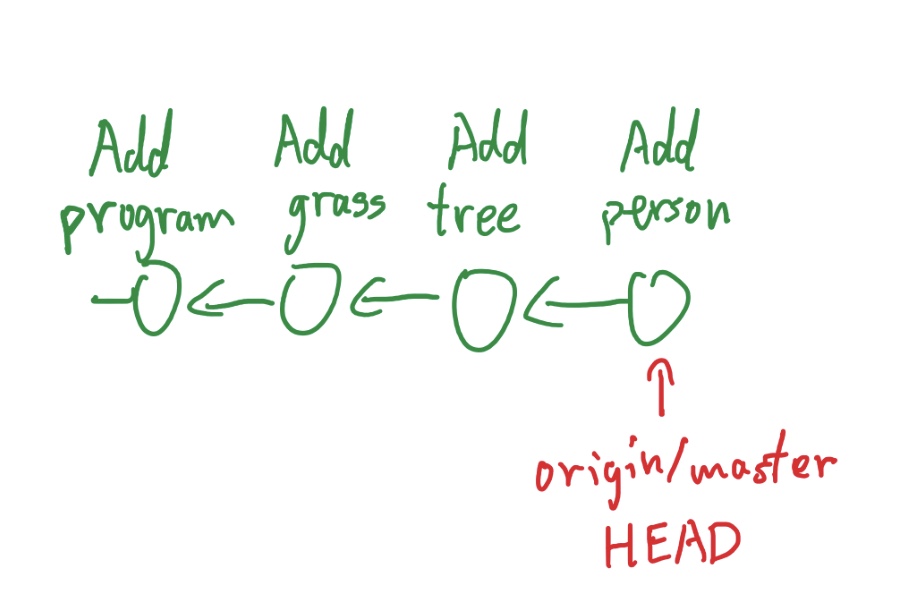 Add Add Add Add
program grass tree person
origin/master
HEAD